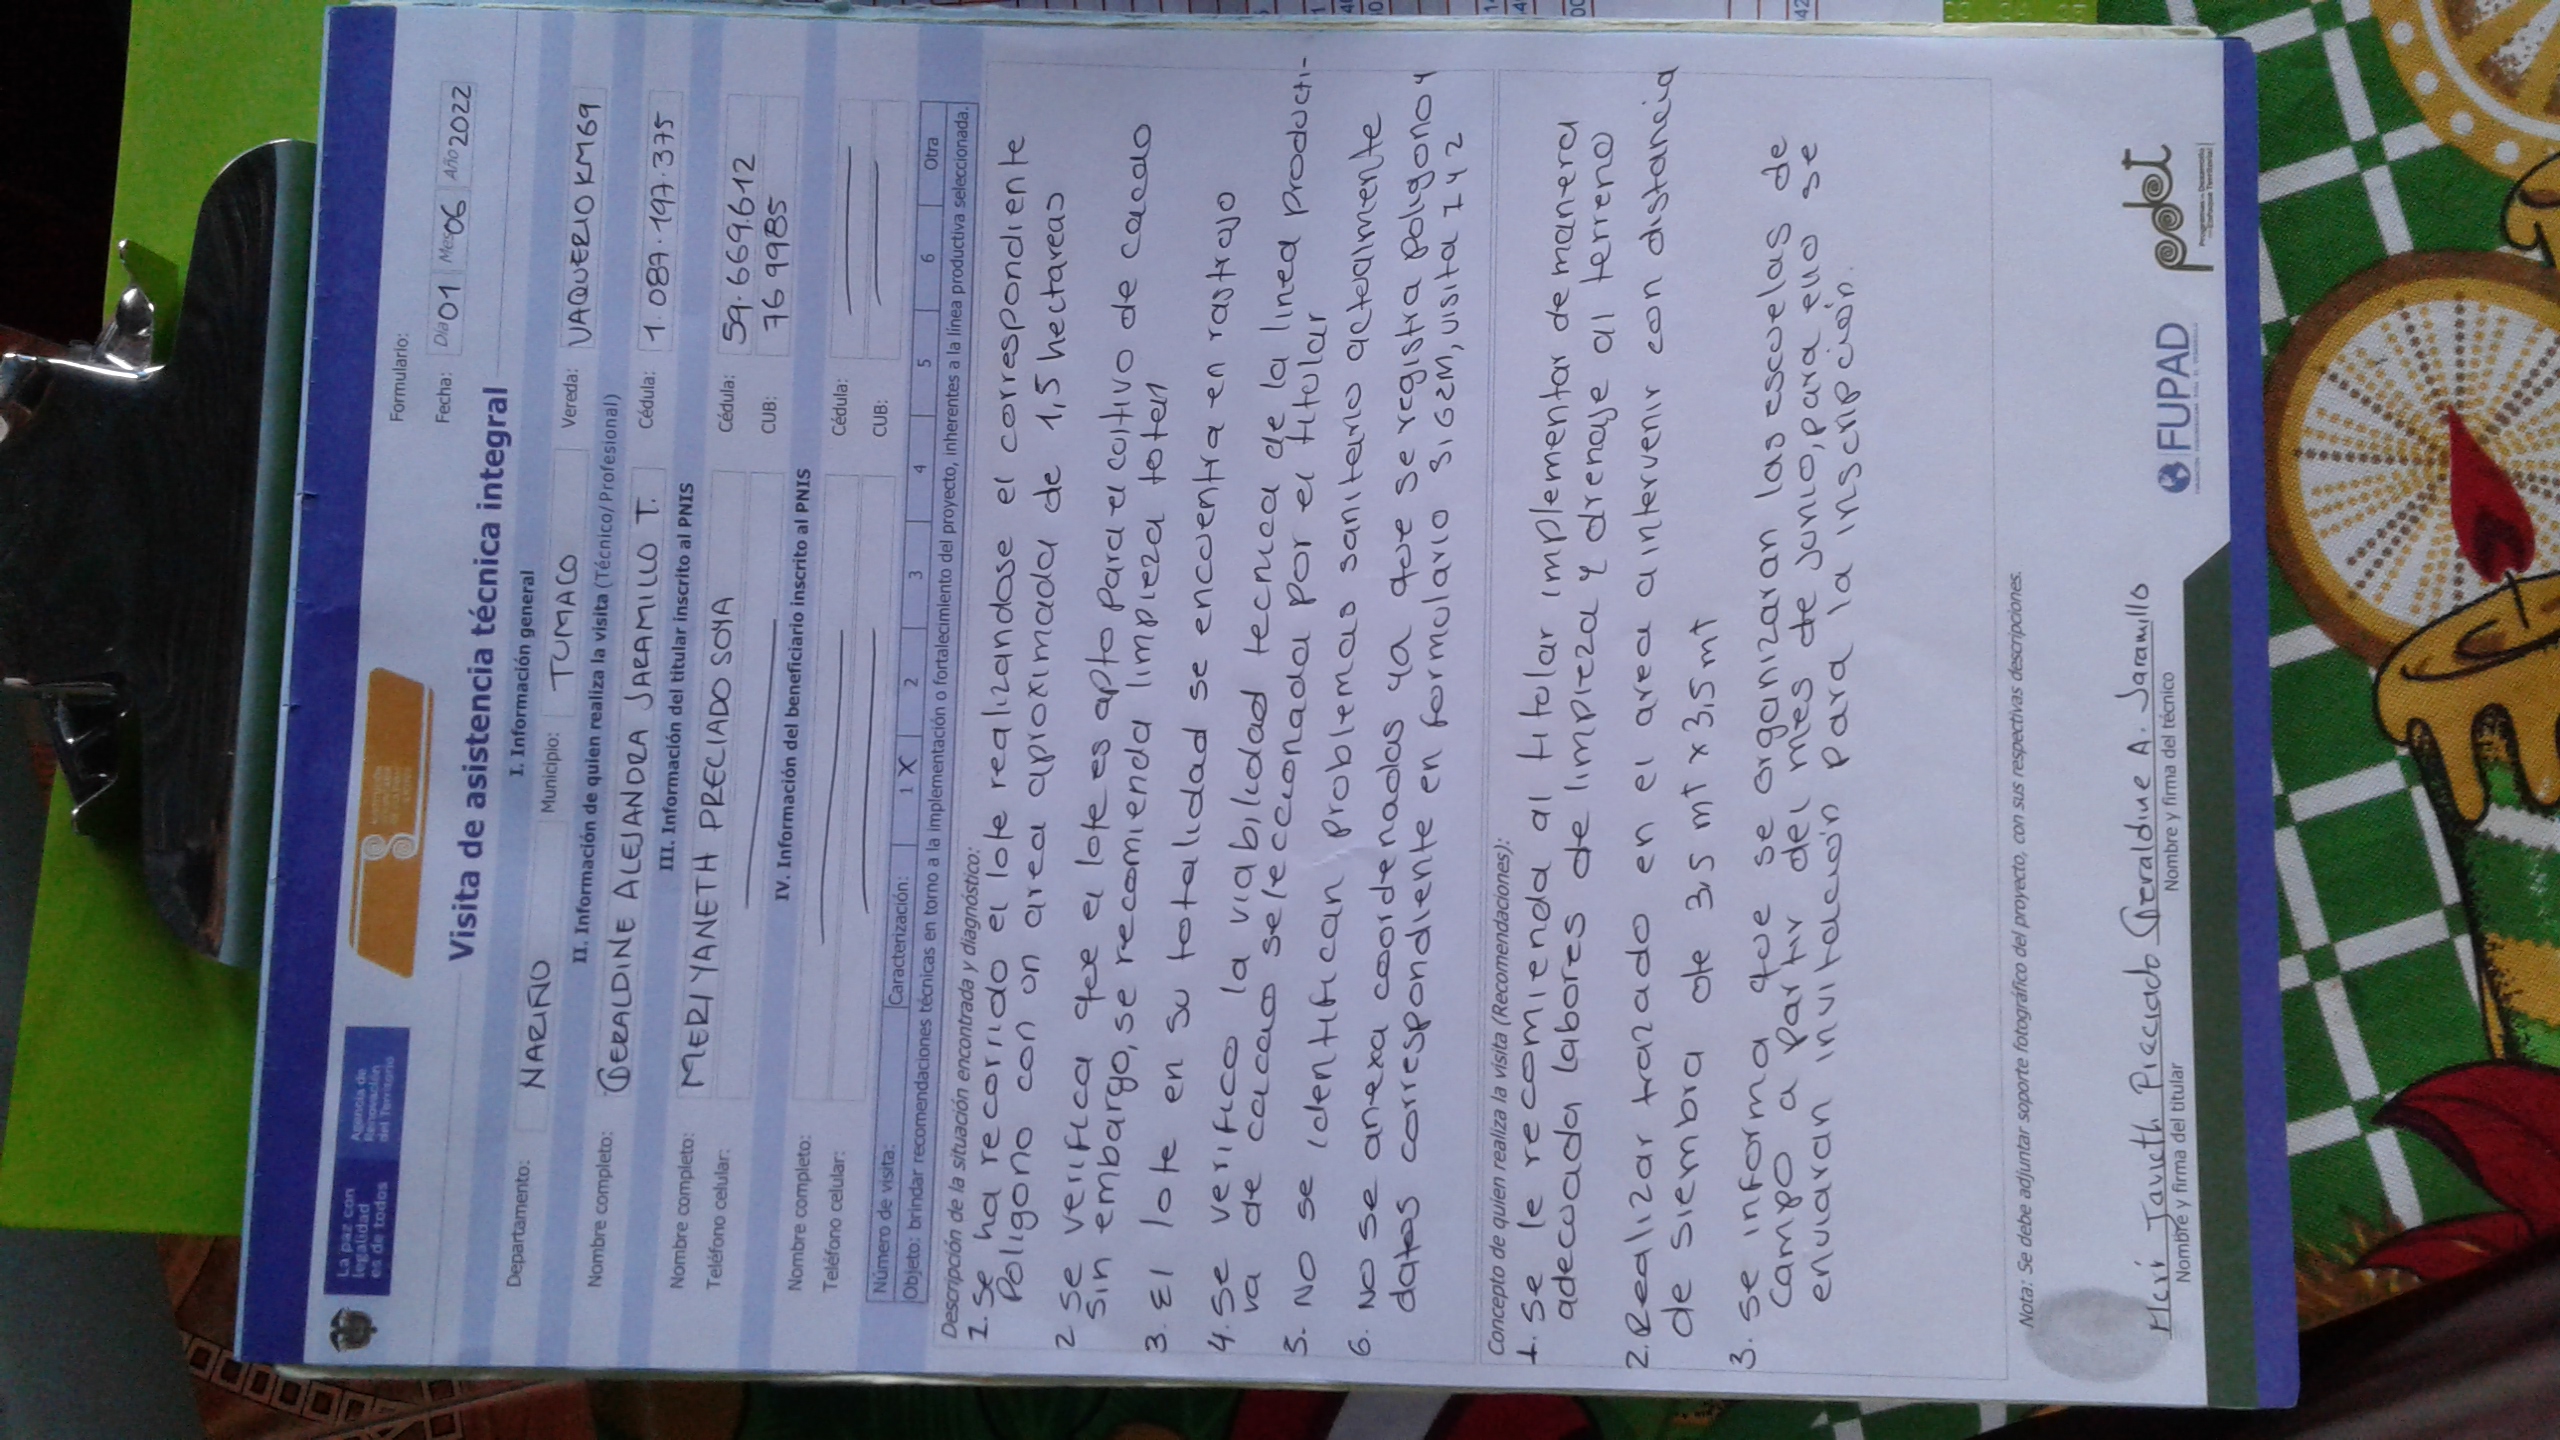 La paz con
legalidad
es de todos
Agencia de
Renovación
del Territorio
Formulario:
Visita de asistencia técnica integral
Fecha: Día 01 Mes 06 Año 2022
I. Información general
Departamento: NARIÑO Municipio: TUMACO Vereda: VAQUERIO KM69
II. Información de quien realiza la visita (Técnico/Profesional)
Nombre completo: GERALDINE ALEJANDRA JARAMILLO T. Cédula: 1.087.197.375
III. Información del titular inscrito al PNIS
Nombre completo: MERI YANETH PRECIADO SOYA Cédula: 59.669.612
Teléfono celular: CUB: 769985
IV. Información del beneficiario inscrito al PNIS
Nombre completo: Cédula:
Teléfono celular: CUB:
Número de visita: Caracterización: 1 X 2 3 4 5 6 Otra
Objeto: brindar recomendaciones técnicas en torno a la implementación o fortalecimiento del proyecto, inherentes a la línea productiva seleccionada.
Descripción de la situación encontrada y diagnóstico:
1. Se ha recorrido el lote realizandose el correspondiente
Poligono con un area aproximada de 1,5 hectareas
2 Se verifica que el lote es apto para el cultivo de cacao
sin embargo, se recomienda limpieza totall
3. El lote en su totalidad se encuentra en rastrajo
4. Se verifico la viabilidad tecnica de la linea producti-
va de cacao seleccionada por el titular
5. No se identifican problemas sanitario actualmente
6. No se anexa coordenadas ya que se registra poligono y
datos correspondiente en formulario SIGEM, visita 1 y 2
Concepto de quien realiza la visita (Recomendaciones):
1. Se le recomienda al titular implementar de manera
adecuada labores de limpieza y drenaje al terreno
2. Realizar tranzado en el area a intervenir con distancia
de siembra de 3,5 mt x 3,5 mt
3. Se informa que se organizaran las escuelas de
campo a partir del mes de junio, para ello se
enviaran invitación para la inscripción.
Nota: Se debe adjuntar soporte fotográfico del proyecto, con sus respectivas descripciones.
Meri Janeth Preciado
Nombre y firma del titular
Geraldine A. Jaramillo
Nombre y firma del técnico
FUPAD
pdet